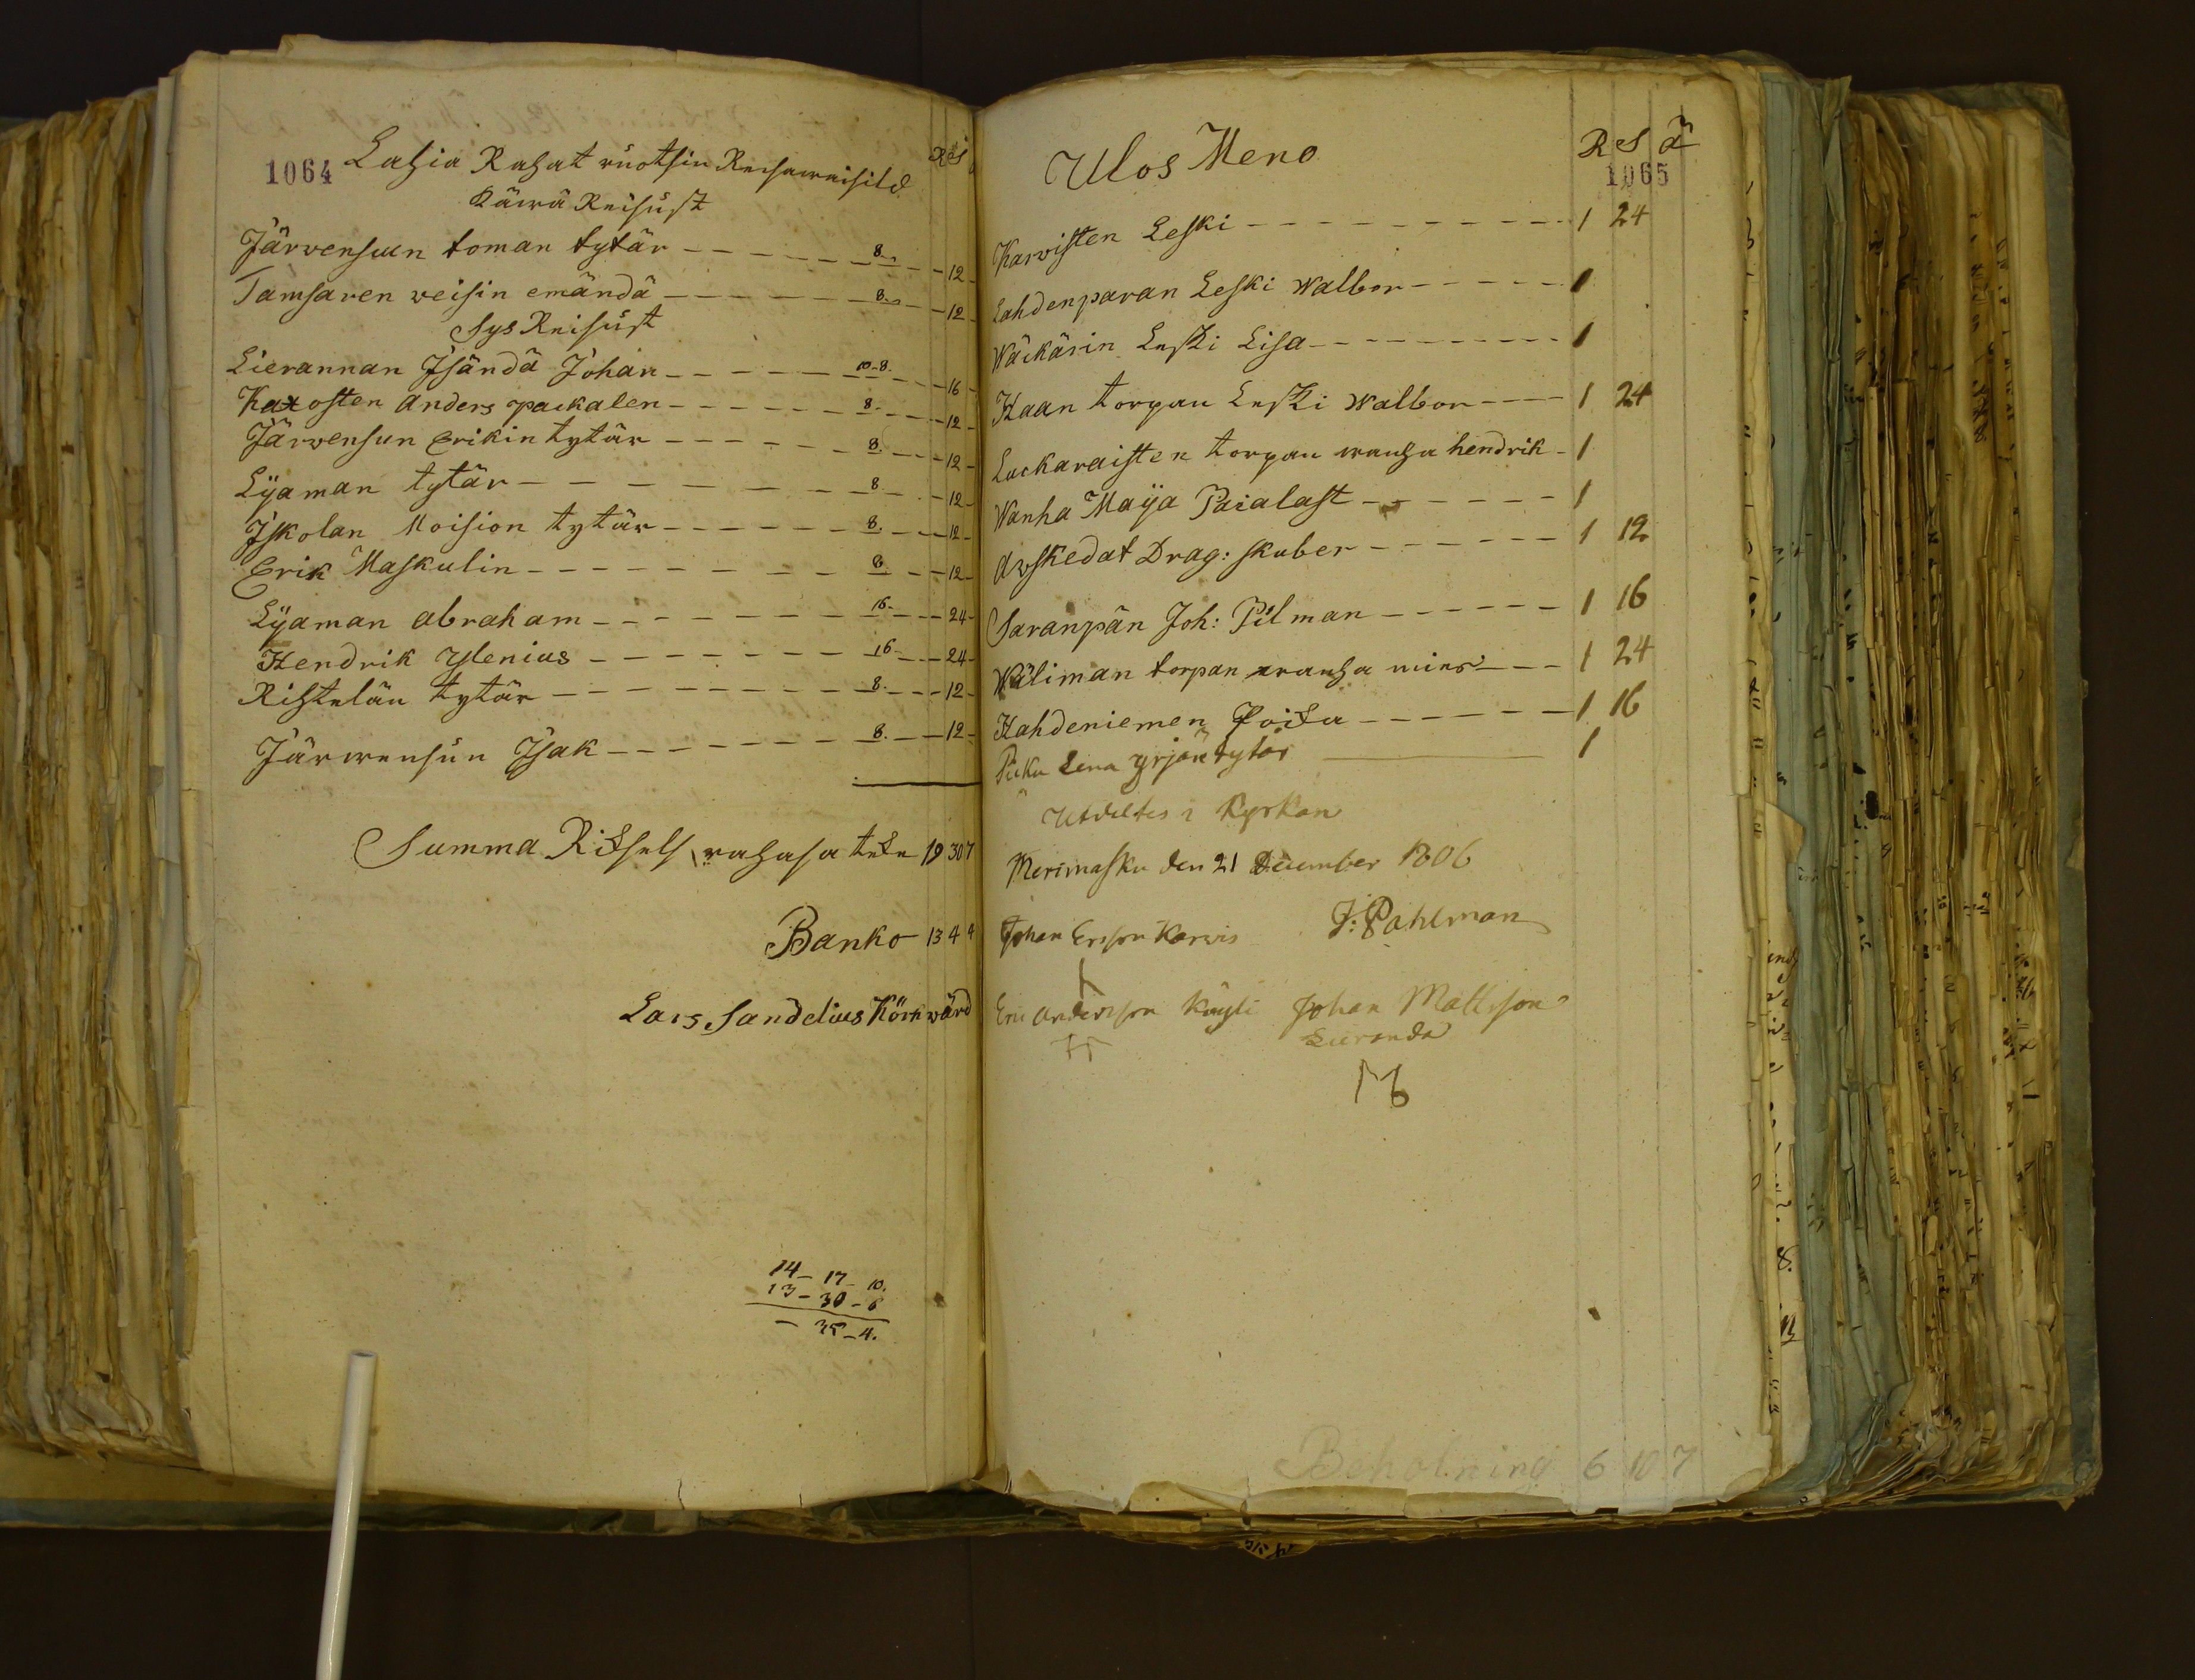 1064 Lahia Rahat ruotsin Reisuwaisild R S
Käwä Reisust
Järvensuun toman tytär 8. 12
Tamsaren veisin emändä 8. 12
Sys Reisust
Lierannan Isändä Johan 10-8. 16
Karosten Anders packalen 8. 12
Järvensun Erikin tytär 8. 12
Lÿaman tytär 8. 12
Iskolan Moision tytär 8. 12
Erik Maskulin 8 12
Lÿaman abraham 16. 24
Hendrik Ylenius 16 24
Ristelän tytär 8. 12
Järwensun Isak 8. 12
Summa Riksels rahasa teke 19 30 7
Banko 13 4 4
Lars Sandelius Körkwärd
14 - 17 - 10.
13 - 30 - 6
- 35 - 4.
Ulos Meno R S ä
1065
Karvisten Leski 1 24
Lahdenparan Leski Walbor 1
Wäckärin Leski Lisa 1
Haan torpan Leski Walbor 1 24
Luckaraisten torpan wanha hendrik 1
Wanha Maÿa Paialast 1
Avskedat Drag: skuber 1 12
Saranpän Joh: Pilman 1 16
Wäliman torpan wanha mies 1 24
Kahdeniemen Poika 1 16
Piku Lena yrjän tytär 1
Utdeltes i Kyrkan
Merimasku den 21 December 1806
Johan Ersson Karvis J: Pahlman
Eric Andersson Köyli Johan Mattsson
Lieranda
Beholning 6 10 7